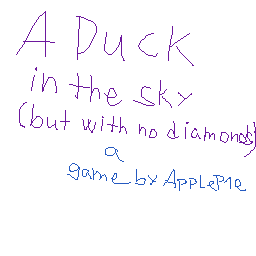 A Duck
in the sky
(but with no diamonds)
a
game by APPLEPIe